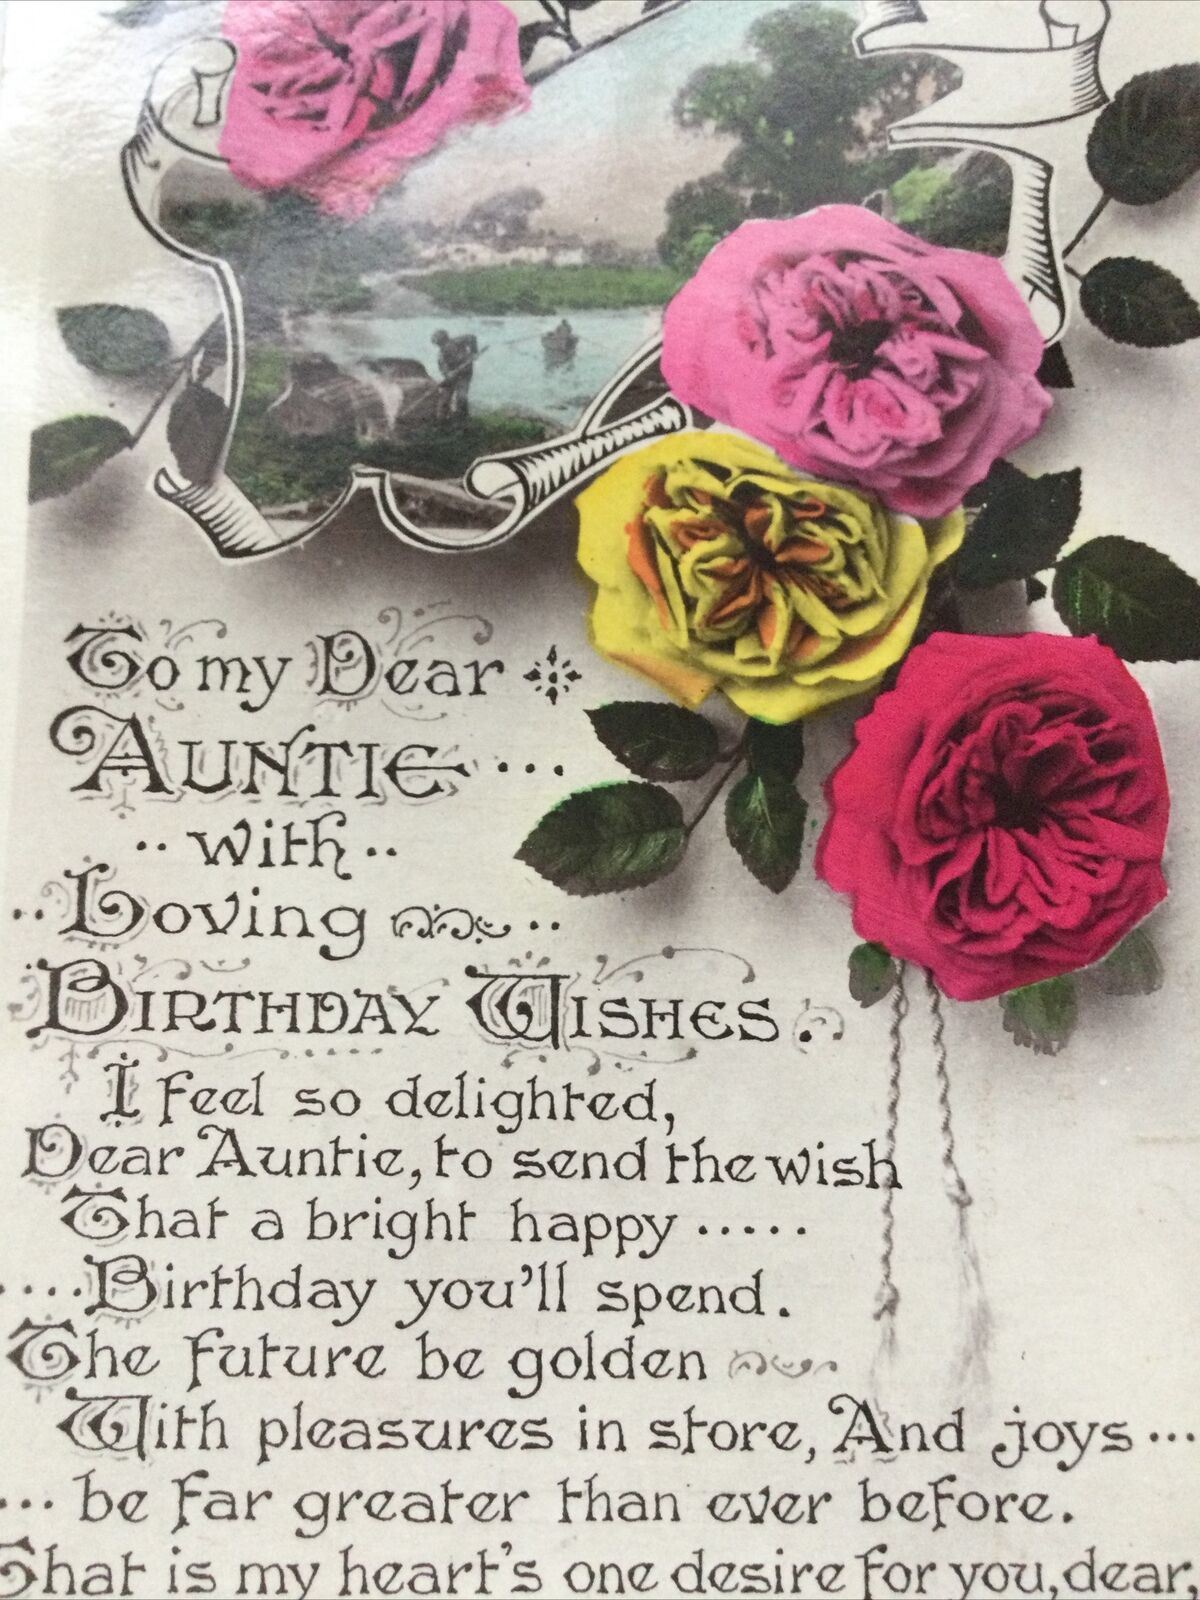 To my Dear
AUNTIE...
.. with ..
.. Loving ..
BIRTHDAY WISHES.
I feel so delighted,
Dear Auntie, to send the wish
That a bright happy .....
.... Birthday you'll spend.
The future be golden
With pleasures in store, And joys ...
... be far greater than ever before.
That is my heart's one desire for you, dear,